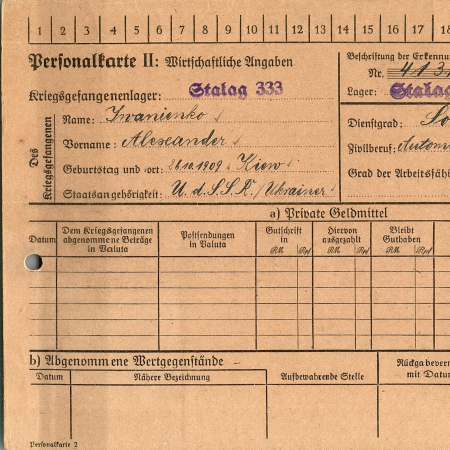 1 2 3 4 5 6 7 8 9 10 11 12 13 14 15 16 17 18
Personalkarte II: Wirtschaftliche Angaben
Beschriftung der Erkennu
Nr. 4131
Kriegsgefangenenlager: Stalag 333
Lager: Stalag
Des Kriegsgefangenen
Name: Iwanienko
Dienstgrad: So
Vorname: Alexander
Zivilberuf: Autom
Geburtstag und -ort: 26.10.1909 Kiew
Grad der Arbeitsfähi
Staatsangehörigkeit: U.d.S.S.R./Ukrainer
a) Private Geldmittel
Datum
Dem Kriegsgefangenen abgenommene Beträge in Valuta
Postsendungen in Valuta
Gutschrift in
RM Rpf
Hiervon ausgezahlt
RM Rpf
Bleibt Guthaben
RM Rpf
b) Abgenommene Wertgegenstände
Rückga bever
mit Datu
Datum
Nähere Bezeichnung
Aufbewahrende Stelle
Personalkarte 2